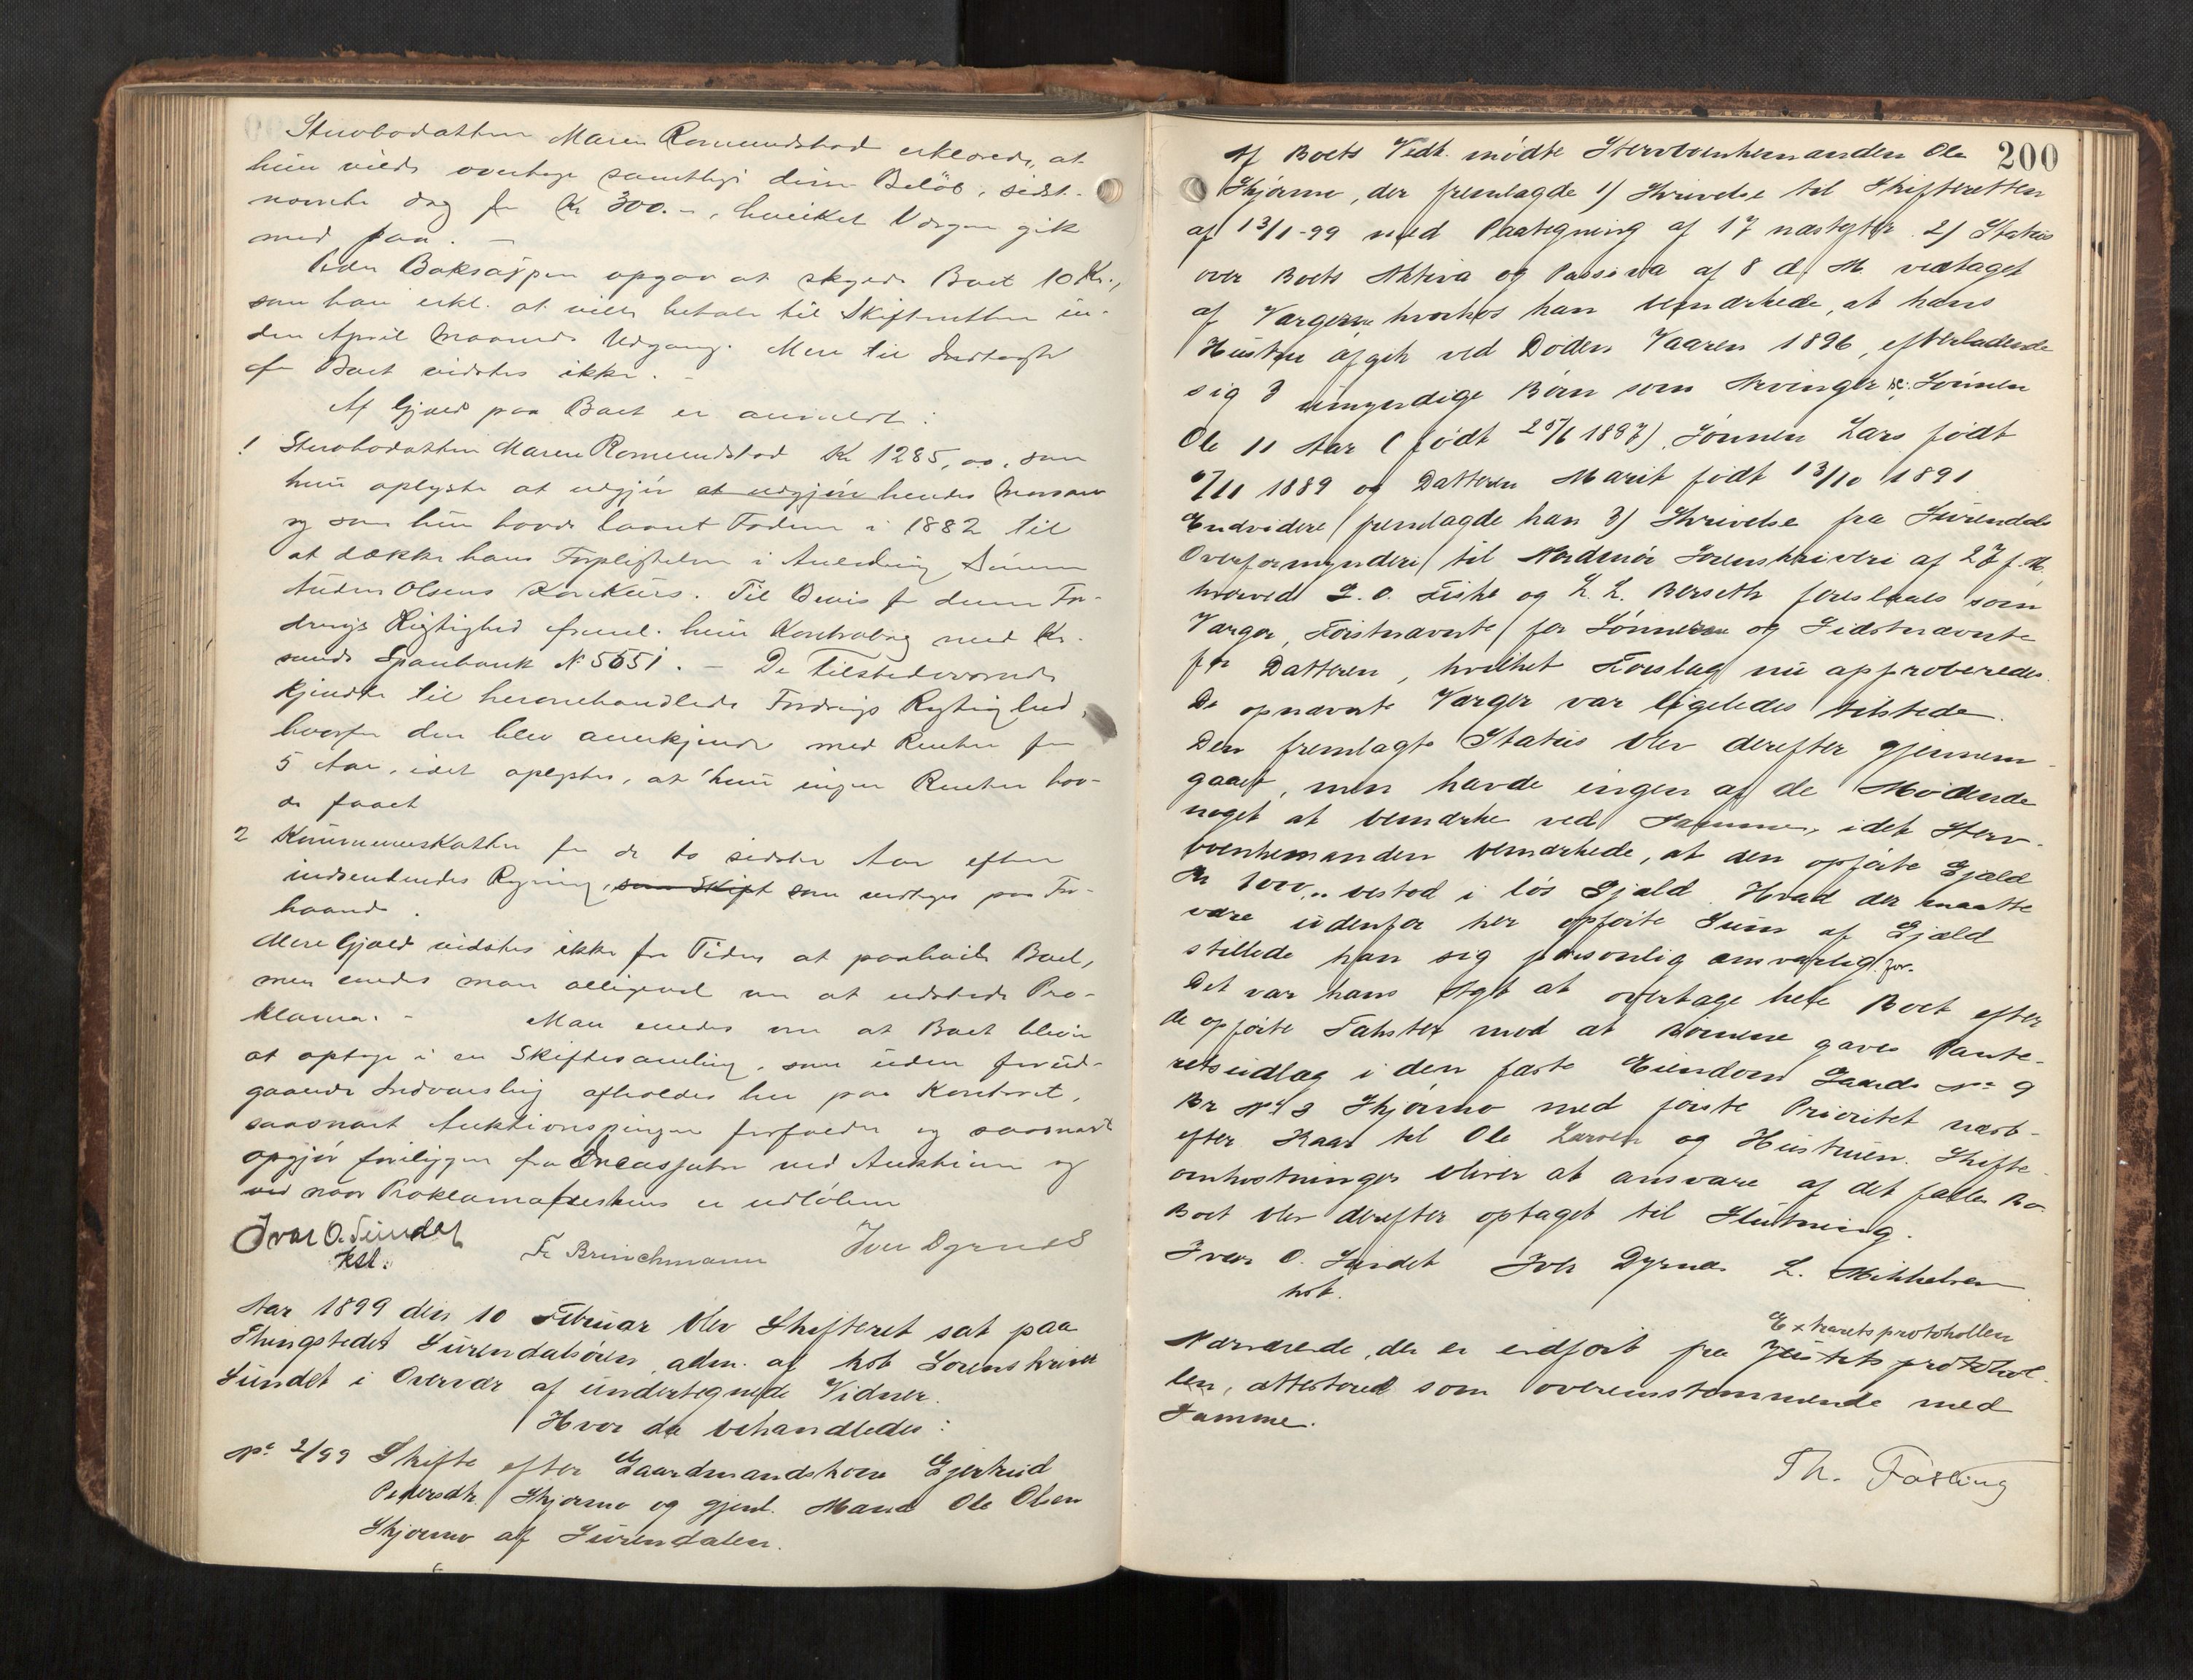 Stervbodatteren Maren Romundstad erklærede, at
hun vilde overtage samtlige disse Beløb, sidst-
nævnte dog for Kr 300.-, hvilket Værgen gik
med paa. -
Peder Baksaspen opgav at skylde Boet 10 Kr.,
som han erkl. at ville betale til Skifteretten in-
den April Maaneds Udgang. Mere til Indtægt
for Boet vidstes ikke. -
Af Gjæld paa Boet er anmeldt:
1 Stervbodatteren Maren Romundstad Kr 1285,00, som
hun oplyste at udgjør at udgjøre hendes
og som hun havde laant Faderen i 1882 til
at dække hans Forpligtelser i Anledning Sønnen
Anders Olsens Konkurs. Til Bevis for denne For-
drings Rigtighed freml. hun Kontrabog med Kr.
sunds Sparebank N. 5651. - De Tilstedeværende
kjendte til heromhandlede Fordrings Rigtighed,
hvorfor den blev anerkjendt med Renter for
5 Aar, idet oplystes, at hun ingen Renter hav-
de faaet
2 Kommuneskatten for de to sidste Aar efter
indsendendes Regning, som Skift som modtages paa For-
haand.
Mere Gjæld vidstes ikke for Tiden at paahvile Boet,
men enedes man alligevel om at udstede Pro-
klama. - Man enedes om at Boet bliver
at optage i en Skiftesamling, som uden forud-
gaaende Indvarsling afholdes her paa Kontoret,
saasnart Auktionspengene forfalder og saasnart
opgjør foreligger fra Incassator ved Auktionen og
ved naar Proklamafristens er udløben
Ivar O. Sundet Fr Brinchmann Iver Dyrnes
kst.
Aar 1899 den 10 Februar blev Skifteret sat paa
Thingstedet Surendalsøren adm. af kst Sorenskriver
Sundet i Overvær af undertegnede Vidner.
Hvor da behandledes:
No 2/99 Skifte efter Gaardmandskone Gjertrud
Pedersdtr Skjørmo og gjenl. Mand Ole Olsen
Skjørmo af Surendalen.
200
Af Boets Vedk. mødte Stervboenkemanden Ole
Skjørmo, der fremlagde 1) Skrivelse til Skifteretten
af 13/1-99 med Paategning af 17 næstefter 2) Status
over Boets Aktiva og Passiva af 8 d. M. vedtaget
af Værgerne, hvorhos han bemærkede, at hans
Hustru afgik ved Døden Vaaren 1896, efterladende
sig 3 umyndige Børn som Arvinger sc: Sønnen
Ole 11 Aar (født 25/6 1887), Sønnen Lars født
/11 1889 og Datteren Marit født 13/10 1891
Endvidere fremlagde han 3) Skrivelse fra Surendals
Overformynderi til Nordmør Sorenskriveri af 27 f. M.,
hvorved L. O. Fiske og L. L. Berseth foreslaaes som
Værger, Førstnævnte for Sønnerne og Sidstnævnte
for Datteren, hvilket Forslag nu approberedes.
De opnævnte Værger var ligeledes tilstede.
Den fremlagte Status blev derefter gjennem-
gaaet, men havde ingen af de Mødende
noget at bemærke ved Samme, idet Sterv-
boenkemanden bemærkede, at den opførte Gjæld
Kr 1000,,, bestod i løs Gjæld. Hvad der maatte
være udenfor her opførte Sum af Gjæld
stillede han sig personlig ansvarlig for.
Det var hans Agt at overtage hele Boet efter
de opførte Takster mod at Børnene gaves Pante-
retsudlæg i den faste Eiendom Gaards No 9
Br No 3 Skjørmo med første Prioritet næst-
efter Kaar til Ole Larsen og Hustruen. Skifte-
omkostninger bliver at ansvare af det fælles Bo.
Boet blev derefter optaget til Slutning.
Ivar O. Sundet Iver Dyrnes L. Mikkelsen
kst.
Extraretsprotokollen
Nærværende, der er indført fra Justitsprotokol-
len, attesteres som overensstemmende med
Samme.
Th. Fasting